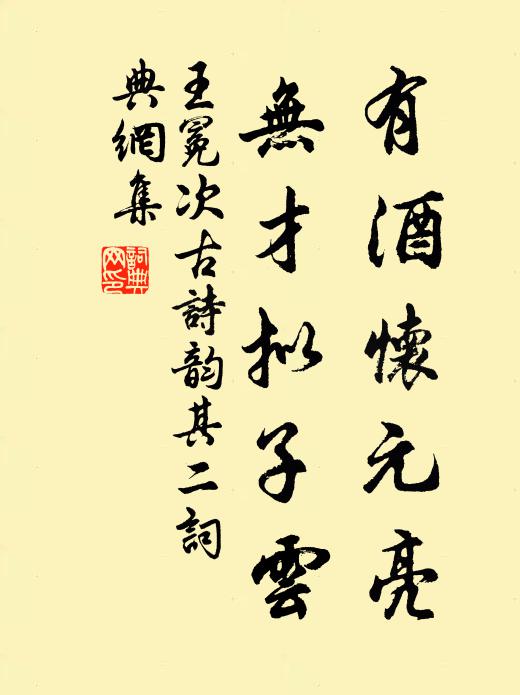 有酒懷元亮
無才拟子雲
王冕次古詩韵其二詞
典網集
詞典
网印